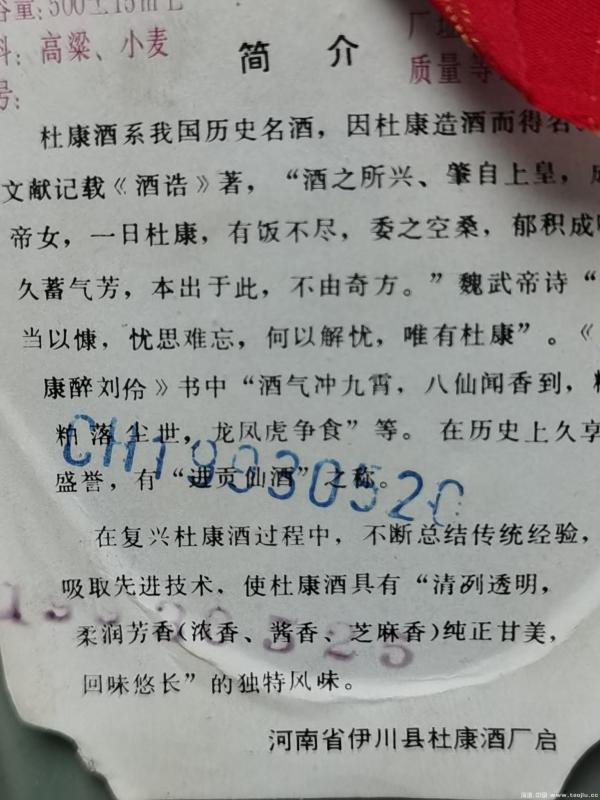 容量:500±15mL
料: 高粱、小麦
号:
厂址
质量等
简 介
杜康酒系我国历史名酒，因杜康造酒而得名、
文献记载《酒诰》著，“酒之所兴、肇自上皇，
帝女，一曰杜康，有饭不尽，委之空桑，郁积成
久蓄气芳，本出于此，不由奇方。”魏武帝诗“
当以慷，忧思难忘，何以解忧，唯有杜康”。《
康醉刘伶》书中“酒气冲九霄，八仙闻香到，
粕落尘世，龙凤虎争食”等。在历史上久享
盛誉，有“进贡仙酒”之称。
CH19930520
在复兴杜康酒过程中，不断总结传统经验，
吸取先进技术，使杜康酒具有“清冽透明，
柔润芳香(浓香、酱香、芝麻香)纯正甘美，
回味悠长”的独特风味。
河南省伊川县杜康酒厂启
www.taojiu.cc